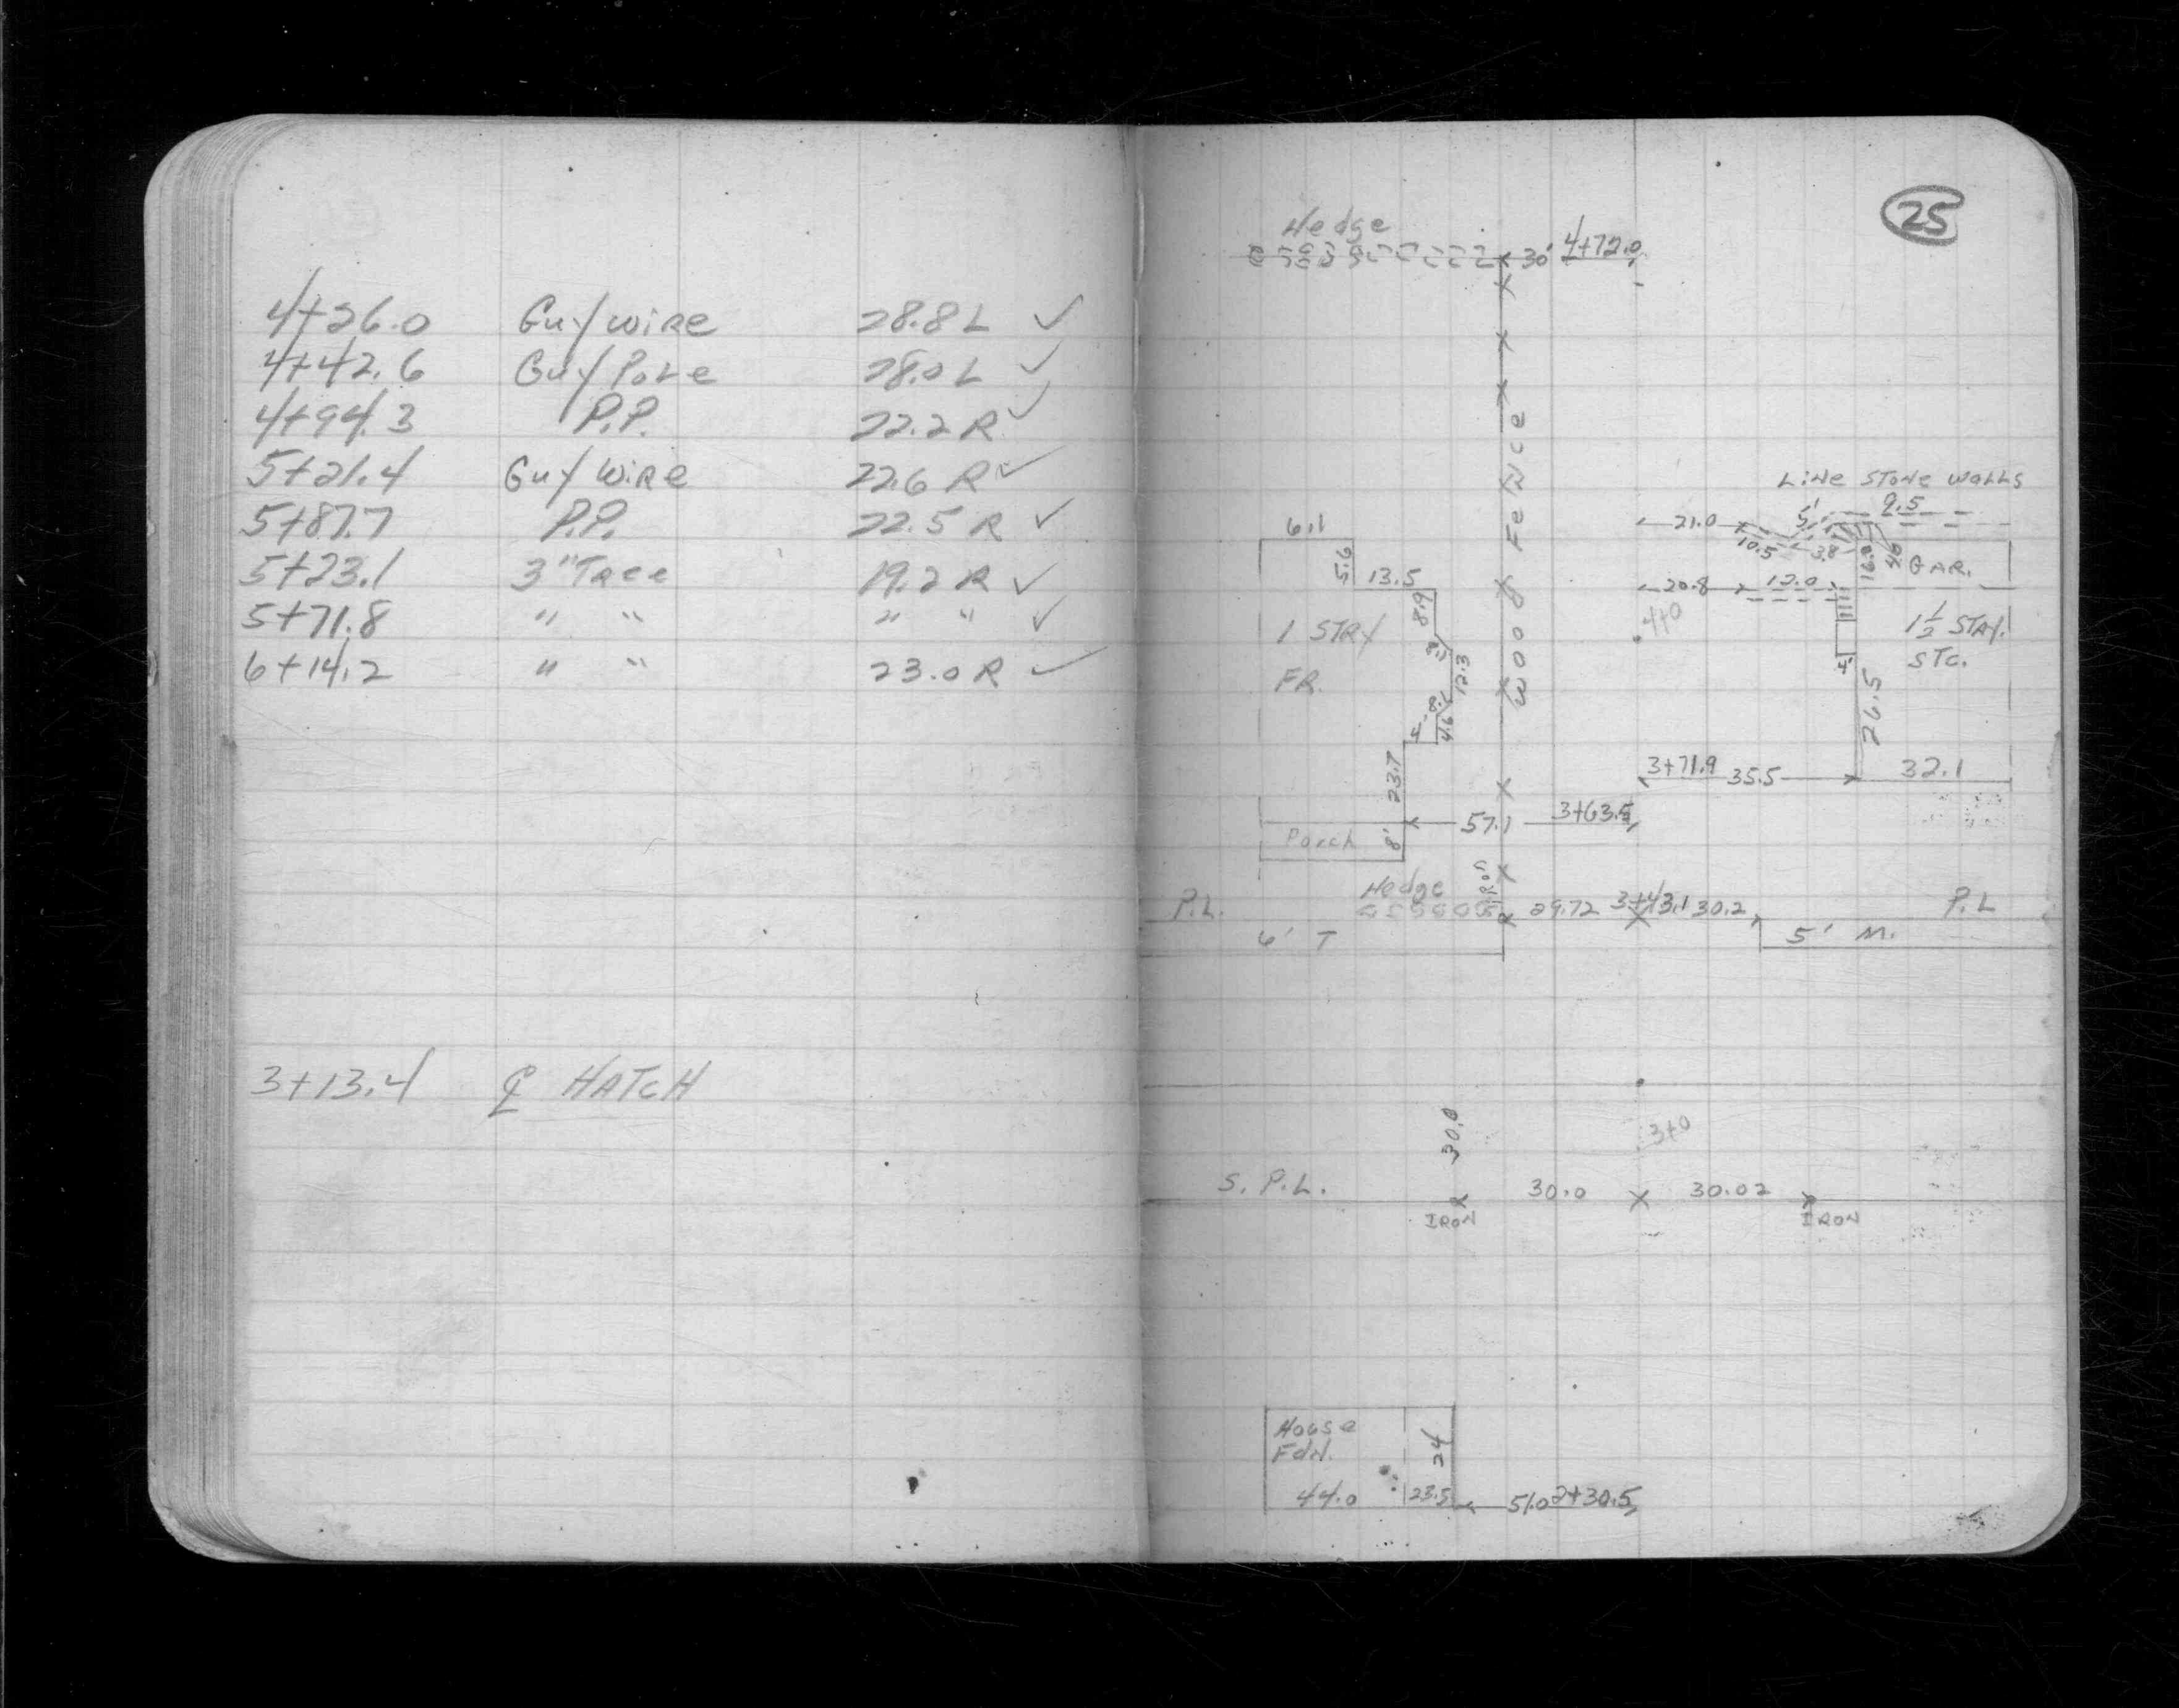 4+26.0 Guy wire 28.8 L ✓
4+42.6 Guy Pole 28.0 L ✓
4+94.3 P.P. 22.2 R ✓
5+21.4 Guy Wire 22.6 R ✓
5+87.7 P.P. 22.5 R ✓
5+23.1 3" Tree 19.2 R ✓
5+71.8 " " " " ✓
6+14.2 " " 23.0 R ✓
3+13.4 ℄ HATCH
25
Hedge
30' 4+72.0
Wood Fence
Line Stone Walls
21.0 5' 9.5
10.5 3.8 16.0 GAR.
20.8 12.0
4+0
6.1
5.6
13.5
8.9
1 STRY
FR.
12.3
4.6
23.7
1½ STRY.
STC.
4'
26.5
3+71.9 35.5 32.1
57.1 3+63.5
Porch 8'
Hedge Iron
P.L. 29.72 3+43.1 30.2 P.L
6' T 5' M.
30.0
3+0
S. P.L. 30.0 30.02
IRON IRON
House
Fdn. 24
44.0 23.5 51.0 2+30.5